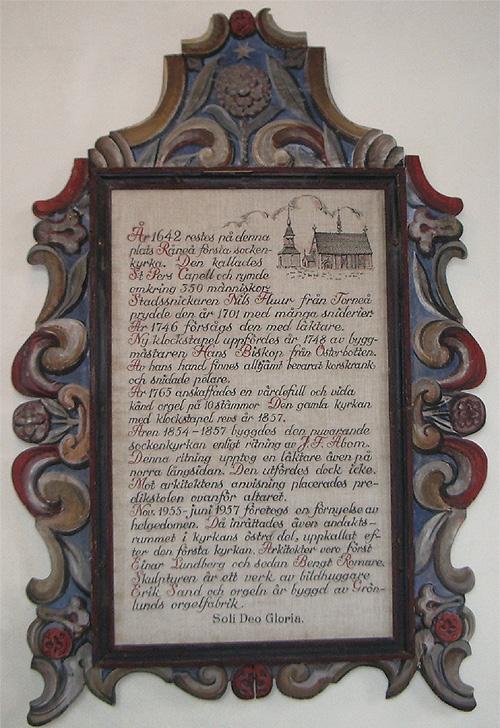 År 1642 restes på denna
plats Råneå första socken-
kyrka. Den kallades
St Pers Capell och rymde
omkring 350 människor.
Stadssnickaren Nils Fluur från Torneå
prydde den år 1701 med många sniderier
År 1746 försågs den med läktare.
Ny klockstapel uppfördes år 1748 av bygg-
mästaren Hans Biskop från Österbotten.
Av hans hand finnes alltjämt bevarat korskrank
och snidade pelare.
År 1765 anskaffades en värdefull och vida
känd orgel på 10 stämmor Den gamla kyrkan
med klockstapel revs år 1857.
Åren 1854-1857 byggdes den nuvarande
sockenkyrkan enligt ritning av J. F. Åbom.
Denna ritning upptog en läktare även på
norra långsidan. Den utfördes dock icke.
Mot arkitektens anvisning placerades pre-
dikstolen ovanför altaret.
Nov. 1955-juni 1957 företogs en förnyelse av
helgedomen. Då inrättades även andakts-
rummet i kyrkans östra del, uppkallat ef-
ter den första kyrkan. Arkitekter voro först
Einar Lundberg och sedan Bengt Romare.
Skulpturen är ett verk av bildhuggare
Erik Sand och orgeln är byggd av Grön-
lunds orgelfabrik.
Soli Deo Gloria.